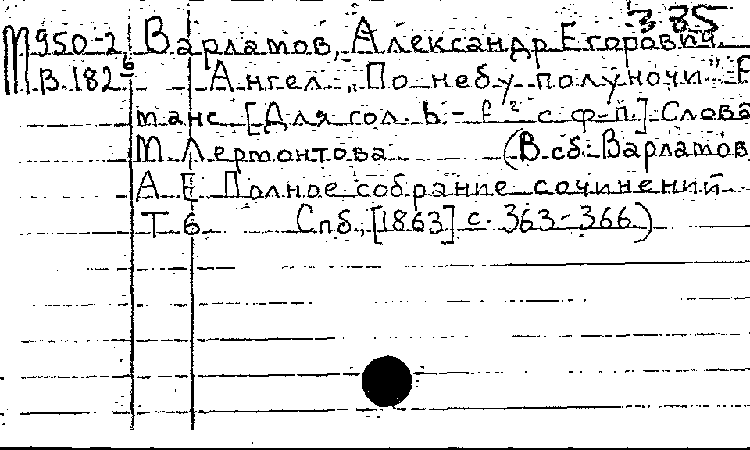 385
М950-2 Варламов, Александр Егорович.
В.182 6 Ангел „По небу полуночи" Р
манс [Для гол. h - f² с ф-п.] Слова
М Лермонтова (В сб: Варламов
А Е Полное собрание сочинений
Т 6 Спб., [1863] с. 363-366)